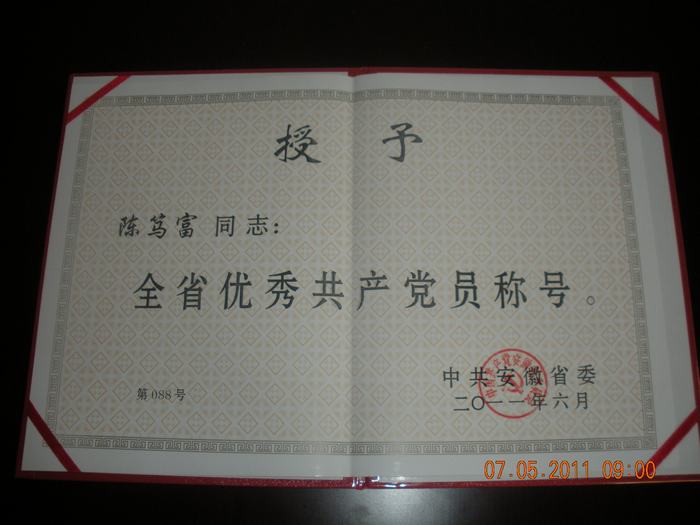 授 予
陈笃富 同志：
全省优秀共产党员称号。
第 088 号
中共安徽省委
二〇一一年六月
07.05.2011 09:00